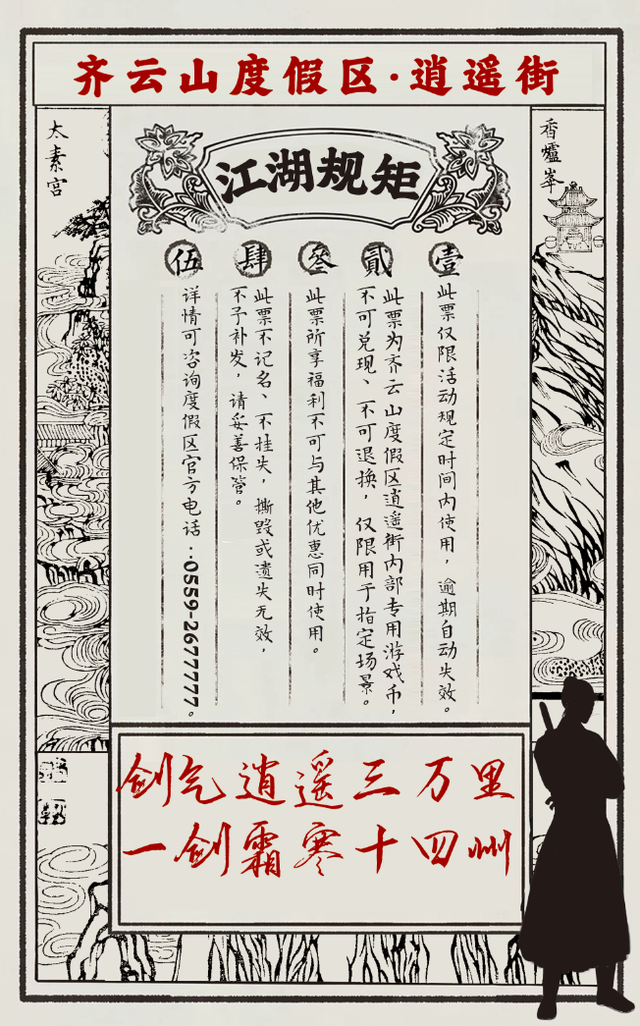 齐云山度假区·逍遥街
太素宫
香爐峯
江湖规矩
壹
此票仅限活动规定时间内使用，逾期自动失效。
貳
此票为齐云山度假区逍遥街内部专用游戏币，
不可兑现、不可退换，仅限用于指定场景。
叁
此票所享福利不可与其他优惠同时使用。
肆
此票不记名、不挂失，撕毁或遗失无效，
不予补发，请妥善保管。
伍
详情可咨询度假区官方电话：0559-2677777。
剑气逍遥三万里
一剑霜寒十四州